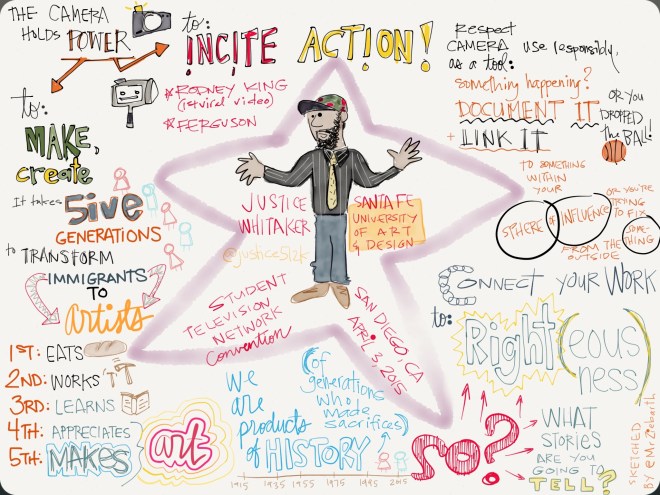 THE CAMERA
HOLDS POWER
to:
INCITE ACTION!
* RODNEY KING
(1st viral video)
* FERGUSON
Respect
CAMERA
as a tool:
use responsibly,
something happening?
DOCUMENT IT
+ LINK IT
OR YOU
DROPPED
THE BALL!
TO SOMETHING
WITHIN
YOUR
SPHERE OF INFLUENCE
OR YOU'RE
TRYING
TO FIX
SOME-
THING
FROM THE
OUTSIDE
to:
MAKE,
create
It takes 5ive
GENERATIONS
to TRANSFORM
IMMIGRANTS
TO
artists
1ST: EATS
2ND: WORKS
3RD: LEARNS
4TH: APPRECIATES
5TH: MAKES
art
JUSTICE
WHITAKER
@justice512k
SANTA FE
UNIVERSITY
OF ART
& DESIGN
STUDENT
TELEVISION
NETWORK
Convention
SAN DIEGO, CA
APRIL 3, 2015
we
are
products
of HISTORY
(of
generations
who
made
sacrifices)
1915 1935 1955 1975 1995 2015
CONNECT YOUR WORK
to:
Right(eous
ness)
SO?
WHAT
STORIES
ARE YOU
GOING TO
TELL?
SKETCHED
BY @MrZiebarth